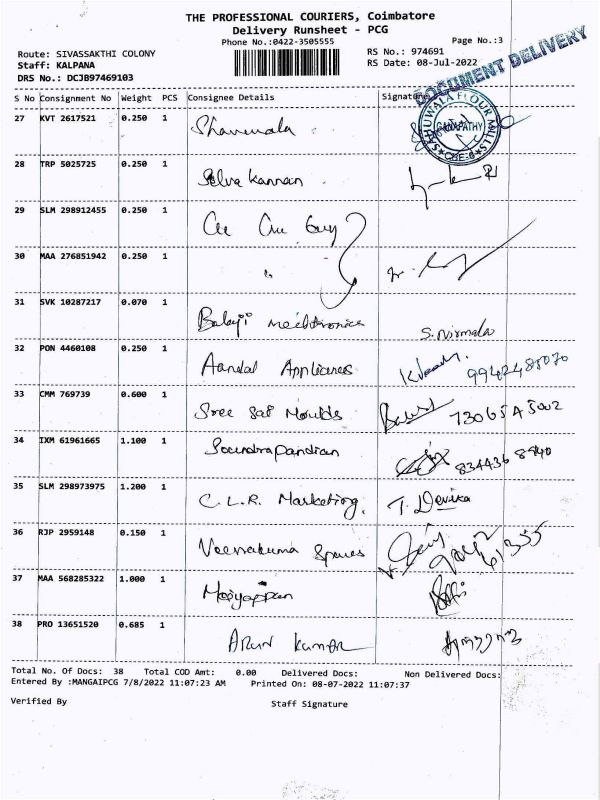 THE PROFESSIONAL COURIERS, Coimbatore
Delivery Runsheet - PCG
Phone No.:0422-3505555 Page No.:3
Route: SIVASSAKTHI COLONY RS No.: 974691
Staff: KALPANA RS Date: 08-Jul-2022
DRS No.: DCJB97469103
DOCUMENT DELIVERY
S No Consignment No Weight PCS Consignee Details Signature
SARUWALA FLOUR MILLS
GANAPATHY
CBE-6
27 KVT 2617521 0.250 1
28 TRP 5025725 0.250 1 Selva Kannan
29 SLM 298912455 0.250 1
30 MAA 276851942 0.250 1 "
31 SVK 10287217 0.070 1 Balaji mechtronics S. Nirmala
32 PON 4460108 0.250 1 Aandal Appliances
33 CMM 769739 0.600 1 Sree Sai Moulds 73065 45002
34 IXM 61961665 1.100 1 Soundrapandian
35 SLM 298973975 1.200 1 C.L.R. Marketing. T. Devika
36 RJP 2959148 0.150 1 Spares
37 MAA 568285322 1.000 1 Meiyappan
38 PRO 13651520 0.685 1 Arun Kumar
Total No. Of Docs: 38 Total COD Amt: 0.00 Delivered Docs: Non Delivered Docs:
Entered By :MANGAIPCG 7/8/2022 11:07:23 AM Printed On: 08-07-2022 11:07:37
Verified By Staff Signature